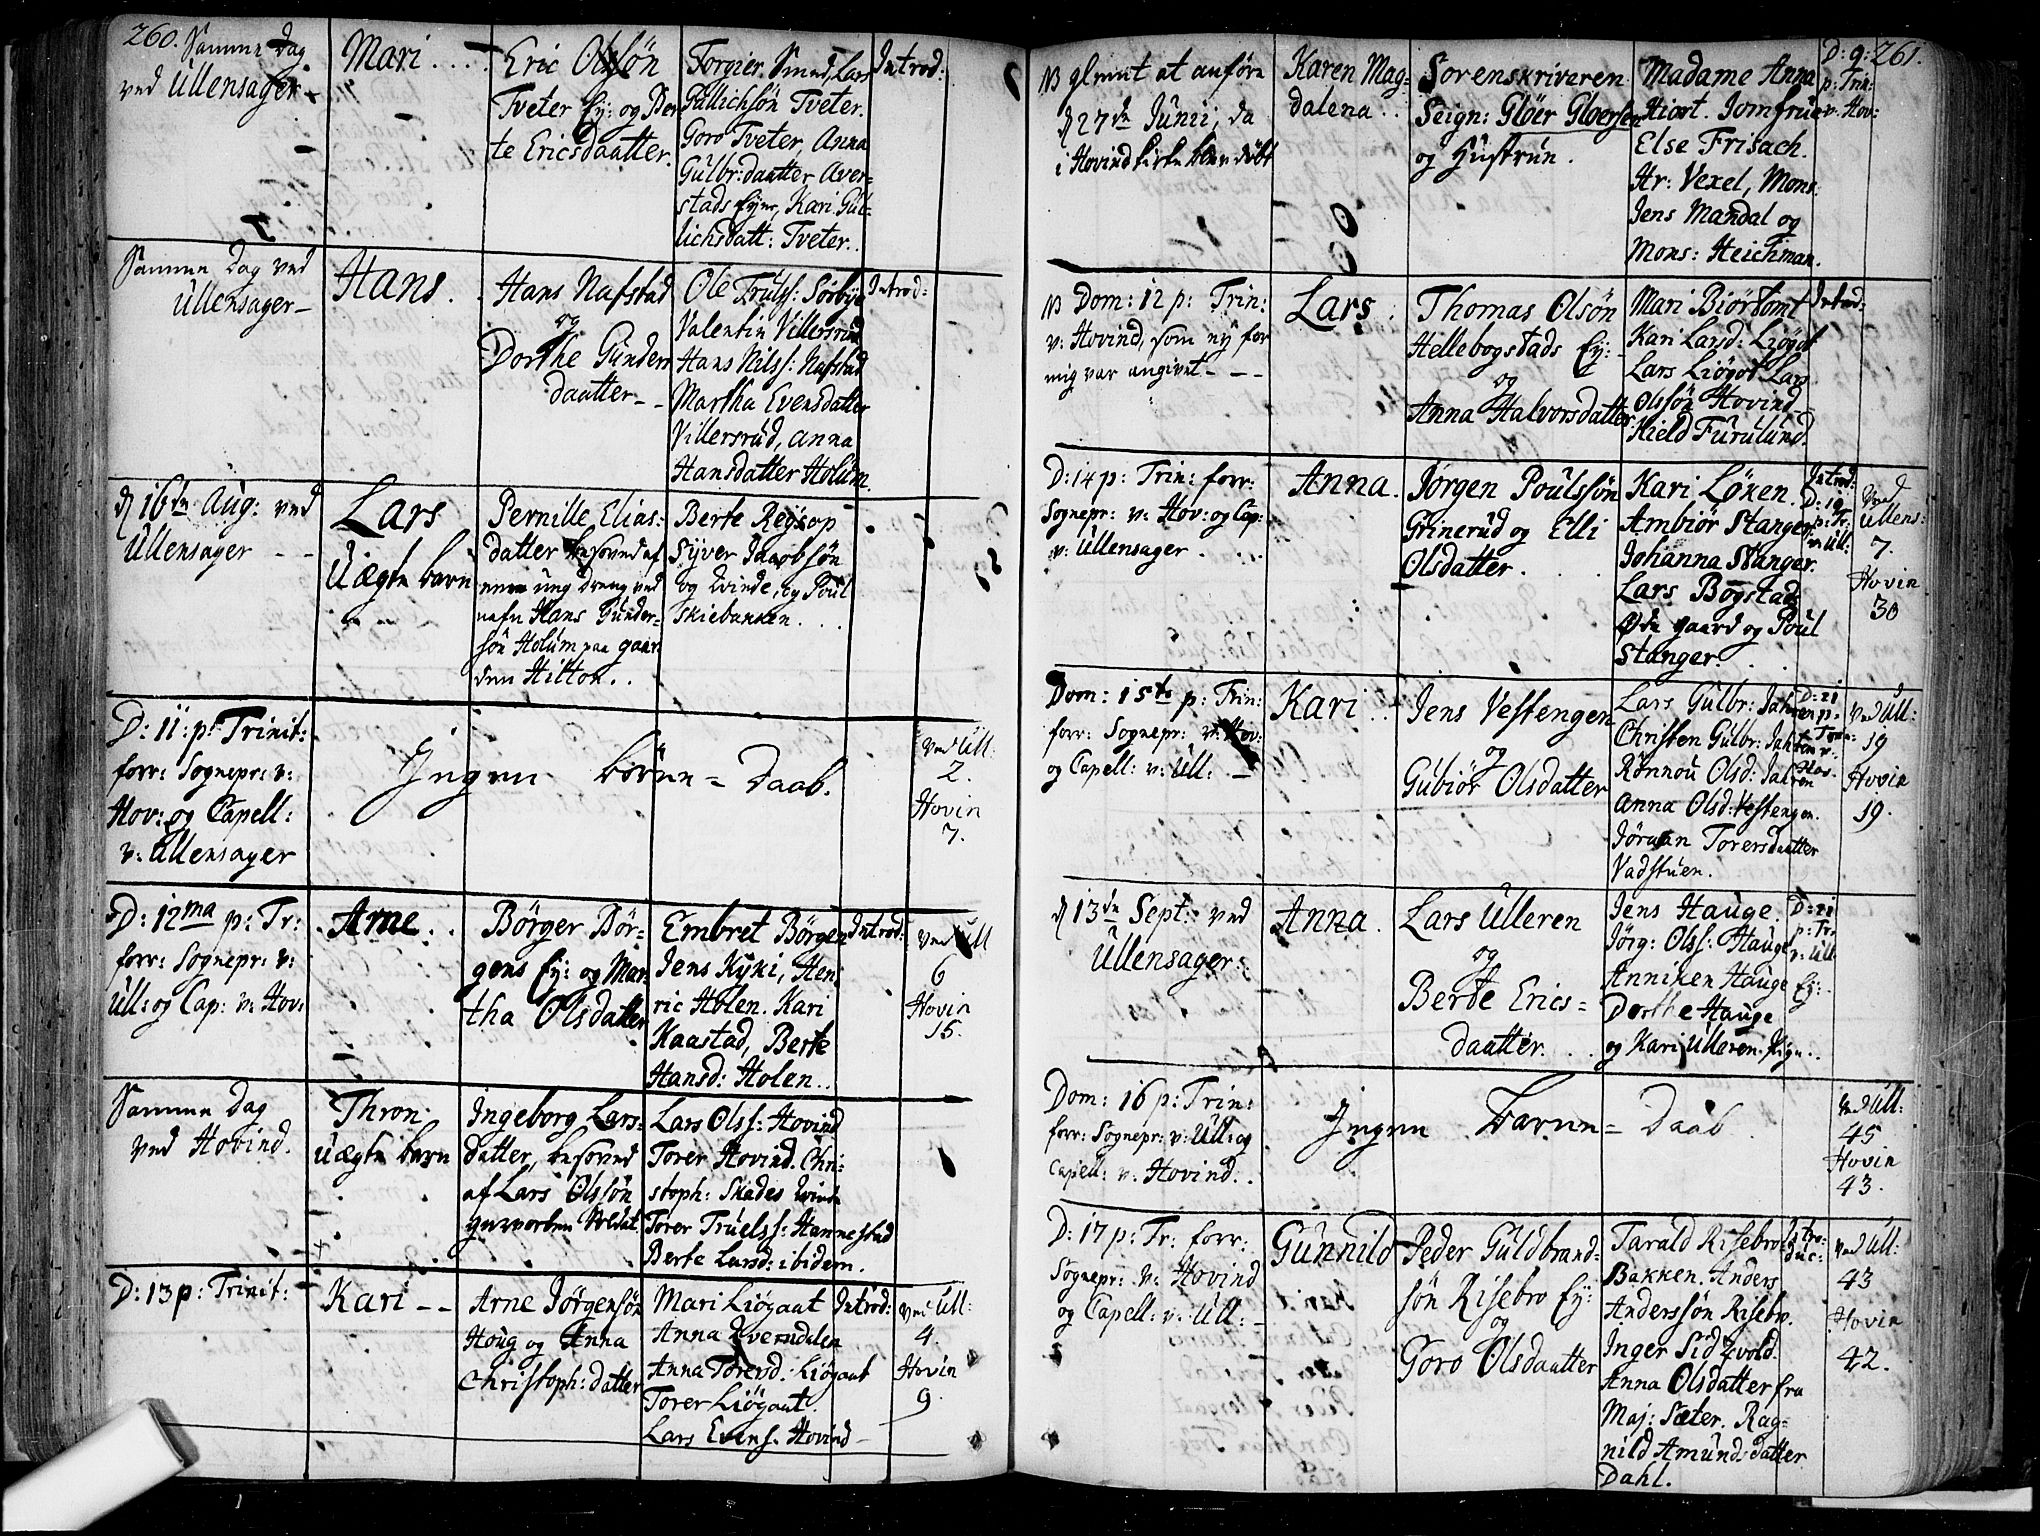 260.
Samme Dag
ved Ullensager
Mari
Eric Olssön
Tveter Ey: og Ber
te Ericsdaatter.
Torgier Smed, Lars
Gullichsön Tveter.
Goro Tveter, Anna
Gulbr: daatter Aver-
stads Eyer, Kari Gul-
lichsdatt: Tveter.
Introd:
Samme Dag ved
Ullensager
Hans.
Hans Nafstad
og
Dorthe Gunders
daatter
Ole Trulss: Sörbye
Valentin Villersrud
Hans Nilss: Nafstad
Martha Evensdatter
Villersrud, Anna
Hansdatter Holum.
Introd:
d 16de Aug: ved
Ullensager
Lars
Uægte barn
Pernille Elias:
datter besovet af
en ung dreng ved
nafn Hans Gunder-
sön Holum paa gaar
den Hilton.
Berte Regsop
Syver Jacobsön
og Qvinde, og Poul
Skiebakken.
D: 11: p: Trinit:
forr: Sognepr: v:
Hov: og Capell:
v: Ullensager
Ingen börne-Daab.
ved Ull:
2.
Hovin
7.
D: 12ma p: Tr:
forr: Sognepr: v:
Ull: og Cap: v: Hov:
Arne
Börger Bör-
gens Ey: og Mar
tha Olsdatter
Embret Börgen
Jens Kyki, Hen
ric Holen. Kari
Kaastad, Berte
Hansd: Holen.
Introd:
ved Ull
6
Hovin
15.
Samme Dag
ved Hovind.
Thron
Uægte barn
Ingeborg Lars-
datter, besoved
af Lars Olssön
gevorben Soldat.
Lars Olss: Hovind
Torer Hovind. Chri-
stoph: Skades Qvinde
Torer Truelss: Hannestad
Berte Larsd: ibidem.
D: 13 p: Trinit:
Kari
Arne Jörgensön
Houg og Anna
Christoph: datter
Mari Liögaat
Anna Qverndalen
Anna Torersd: Liögaat
Torer Liögaat.
Lars Evens. Hovind
Introd:
ved Ull:
4.
Hovin
9.
261.
NB glemt at anföre
d 27de Junii, da
i Hovind kirke blev döbt
Karen Mag-
dalena
Sorenskriveren
Seign: Glöer Gloersen
og Hustrue.
Madame Anna
Hiort. Jomfrue
Else Frisach.
Hr: Vexel, Mons:
Jens Mandal og
Mons: Heichman.
D: 9:
p: Trin:
v: Hov:
NB Dom: 12 p: Trin:
v: Hovind, som ny for
mig var angivet
Lars
Thomas Olsön
Hellebogstads Ey:
og
Anna Halvorsdatter
Mari Biörtomt
Kari Larsd: Liögot
Lars Liögot Lars
Olssön Hovind
Kield Furulund.
Introd:
D: 14 p: Trin: forr:
Sognepr: v: Hov: og Cap:
v: Ullensager.
Anna.
Jörgen Poulssön
Grinerud og Elli
Olsdatter.
Kari Löken.
Ambiör Stanger
Johanna Stanger.
Lars Bogstad
Öde gaard og Poul
Stanger.
Introd:
D: 19
p: Tr:
v: Ull:
ved
Ullens:
7.
Hovin
30
Dom: 15te p: Trin:
forr: Sognepr: v: Hov:
og Capell: v: Ull:
Kari
Jens Vestengen
og
Gubiör Olsdatter
Lars Gulbr: Jahren
Christen Gulbr: Jahren
Rönnou Olsd: Jahren
Anna Olsd: Vestengen.
Jöraan Torersdaatter
Vadstuen.
D: 21
p:
Trin:
v:
Hov.
ved Ull:
19
Hovin
19.
d 13de Sept: ved
Ullensager
Anna.
Lars Ulleren
og
Berte Erics-
daatter.
Jens Hauge.
Jörg: Olss: Hauge
Anniken Hauge Ey:
Dorthe Hauge
og Kari Ulleren Pige.
D: 21
p: Tr.
v: Ull.
Dom: 16 p: Trin:
forr: Sognepr: v: Ull: og
Capell: v: Hovind.
Ingen Barne-Daab
ved Ull:
45
Hovin
43.
D: 17 p: Tr: forr:
Sognepr: v: Hovind
og Capell: v: Ull:
Gunnild
Peder Guldbrand-
sön Risebro Ey:
og
Goro Olsdaatter
Tarald Risebro
Bakken. Anders
Anderssön Risebro.
Inger Sid Qvold.
Anna Olsdatter fra
Maj: Sæter. Rag-
nild Amunds: datter
Dahl.
Intro-
duc:
ved Ull:
43
Hovin
42.